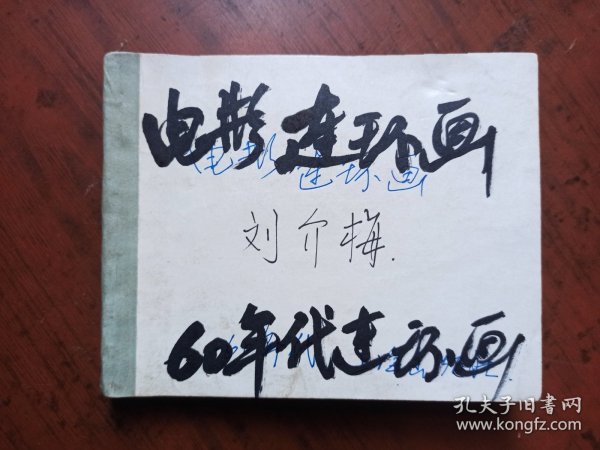 电影连环画
电影
连环画
刘介梅.
60年代连环画
孔夫子旧书网
www.kongfz.com